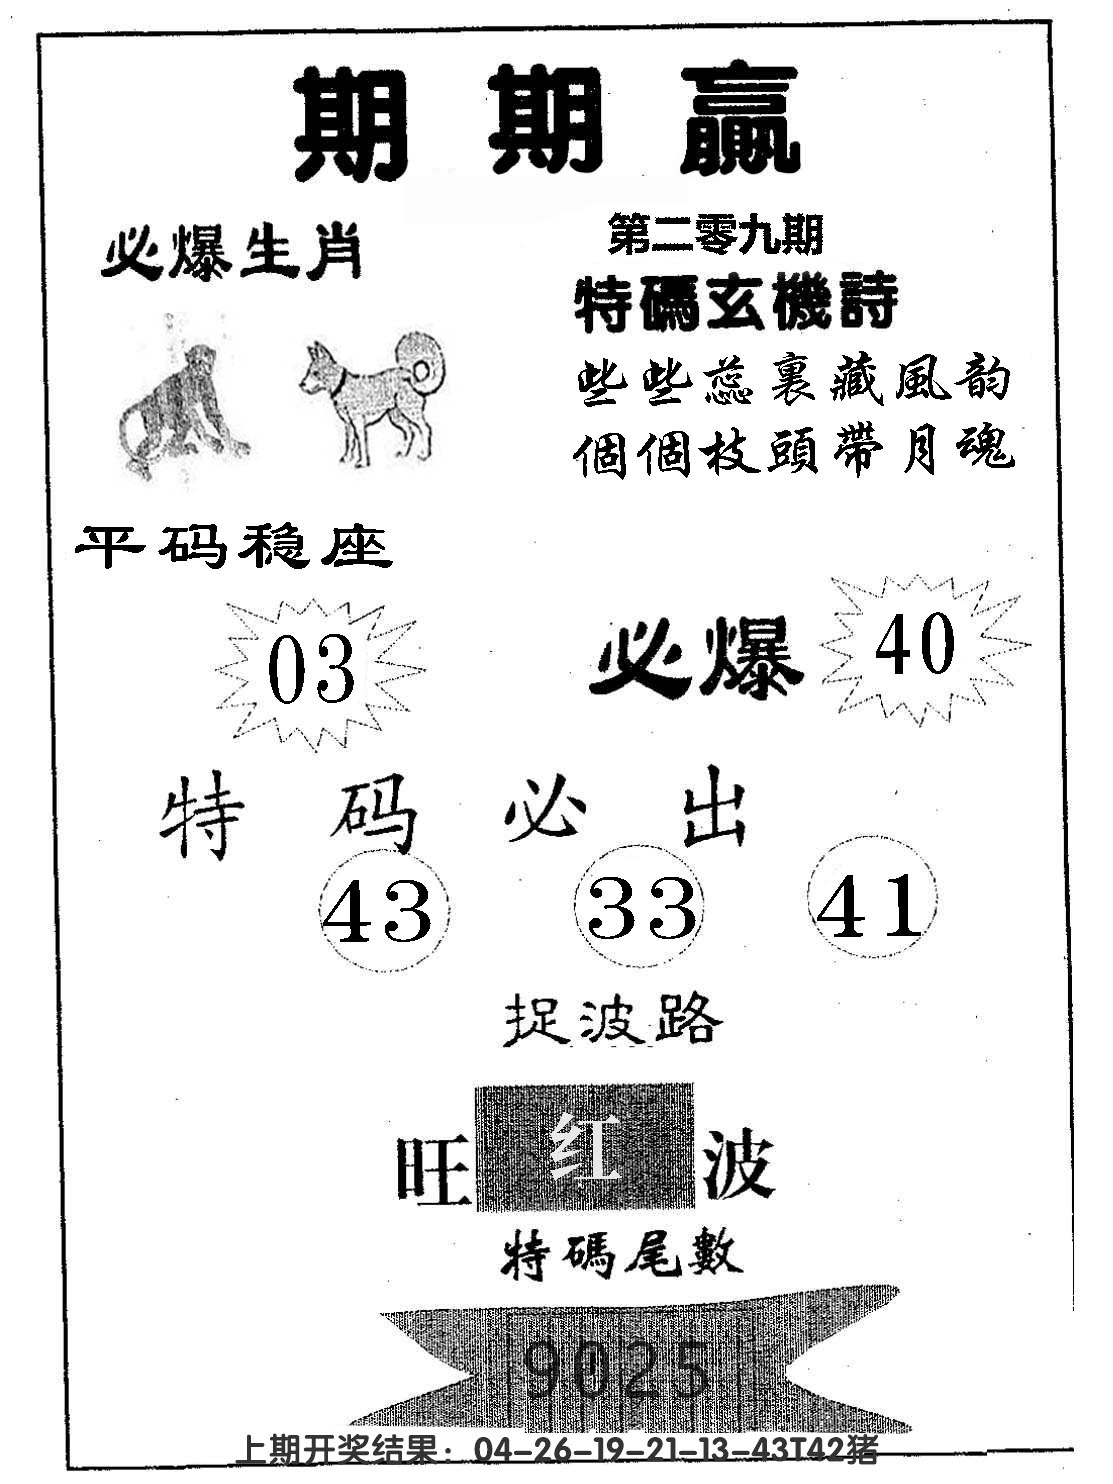 期期赢
必爆生肖
第二零九期
特碼玄機詩
些些蕊裏藏風韵
個個枝頭帶月魂
平码稳座
03
必爆
40
特码必出
43 33 41
捉波路
旺红波
特碼尾數
9025
上期开奖结果：04-26-19-21-13-43T42猪